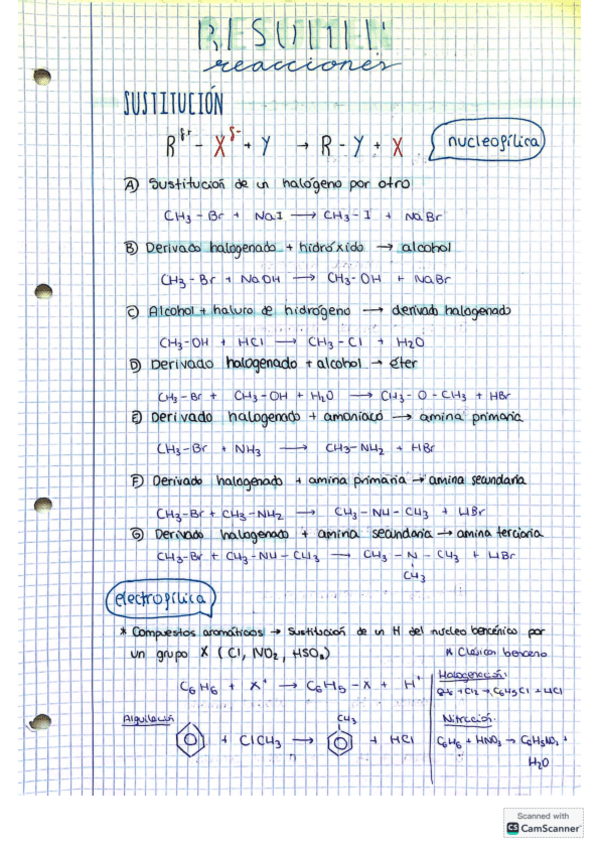 RESUMEN
reacciones
SUSTITUCIÓN
R^δ+ - X^δ- + Y → R - Y + X
nucleofílica
A) Sustitución de un halógeno por otro
CH3 - Br + NaI → CH3 - I + NaBr
B) Derivado halogenado + hidróxido → alcohol
CH3 - Br + NaOH → CH3 - OH + NaBr
C) Alcohol + haluro de hidrógeno → derivado halogenado
CH3 - OH + HCl → CH3 - Cl + H2O
D) Derivado halogenado + alcohol → éter
CH3 - Br + CH3 - OH + H2O → CH3 - O - CH3 + HBr
E) Derivado halogenado + amoniaco → amina primaria
CH3 - Br + NH3 → CH3 - NH2 + HBr
F) Derivado halogenado + amina primaria → amina secundaria
CH3 - Br + CH3 - NH2 → CH3 - NH - CH3 + HBr
G) Derivado halogenado + amina secundaria → amina terciaria
CH3 - Br + CH3 - NH - CH3 → CH3 - N - CH3 + HBr
CH3
electrofílica
* Compuestos aromáticos → sustitución de un H del núcleo bencénico por
un grupo X (Cl, NO2, HSO3)
* Clásicas benceno
C6H6 + X+ → C6H5 - X + H+
Halogenación:
C6H6 + Cl2 → C6H5Cl + HCl
Alquilación
CH3
+ ClCH3 → + HCl
Nitración:
C6H6 + HNO3 → C6H5NO2 +
H2O
Scanned with
CS CamScanner